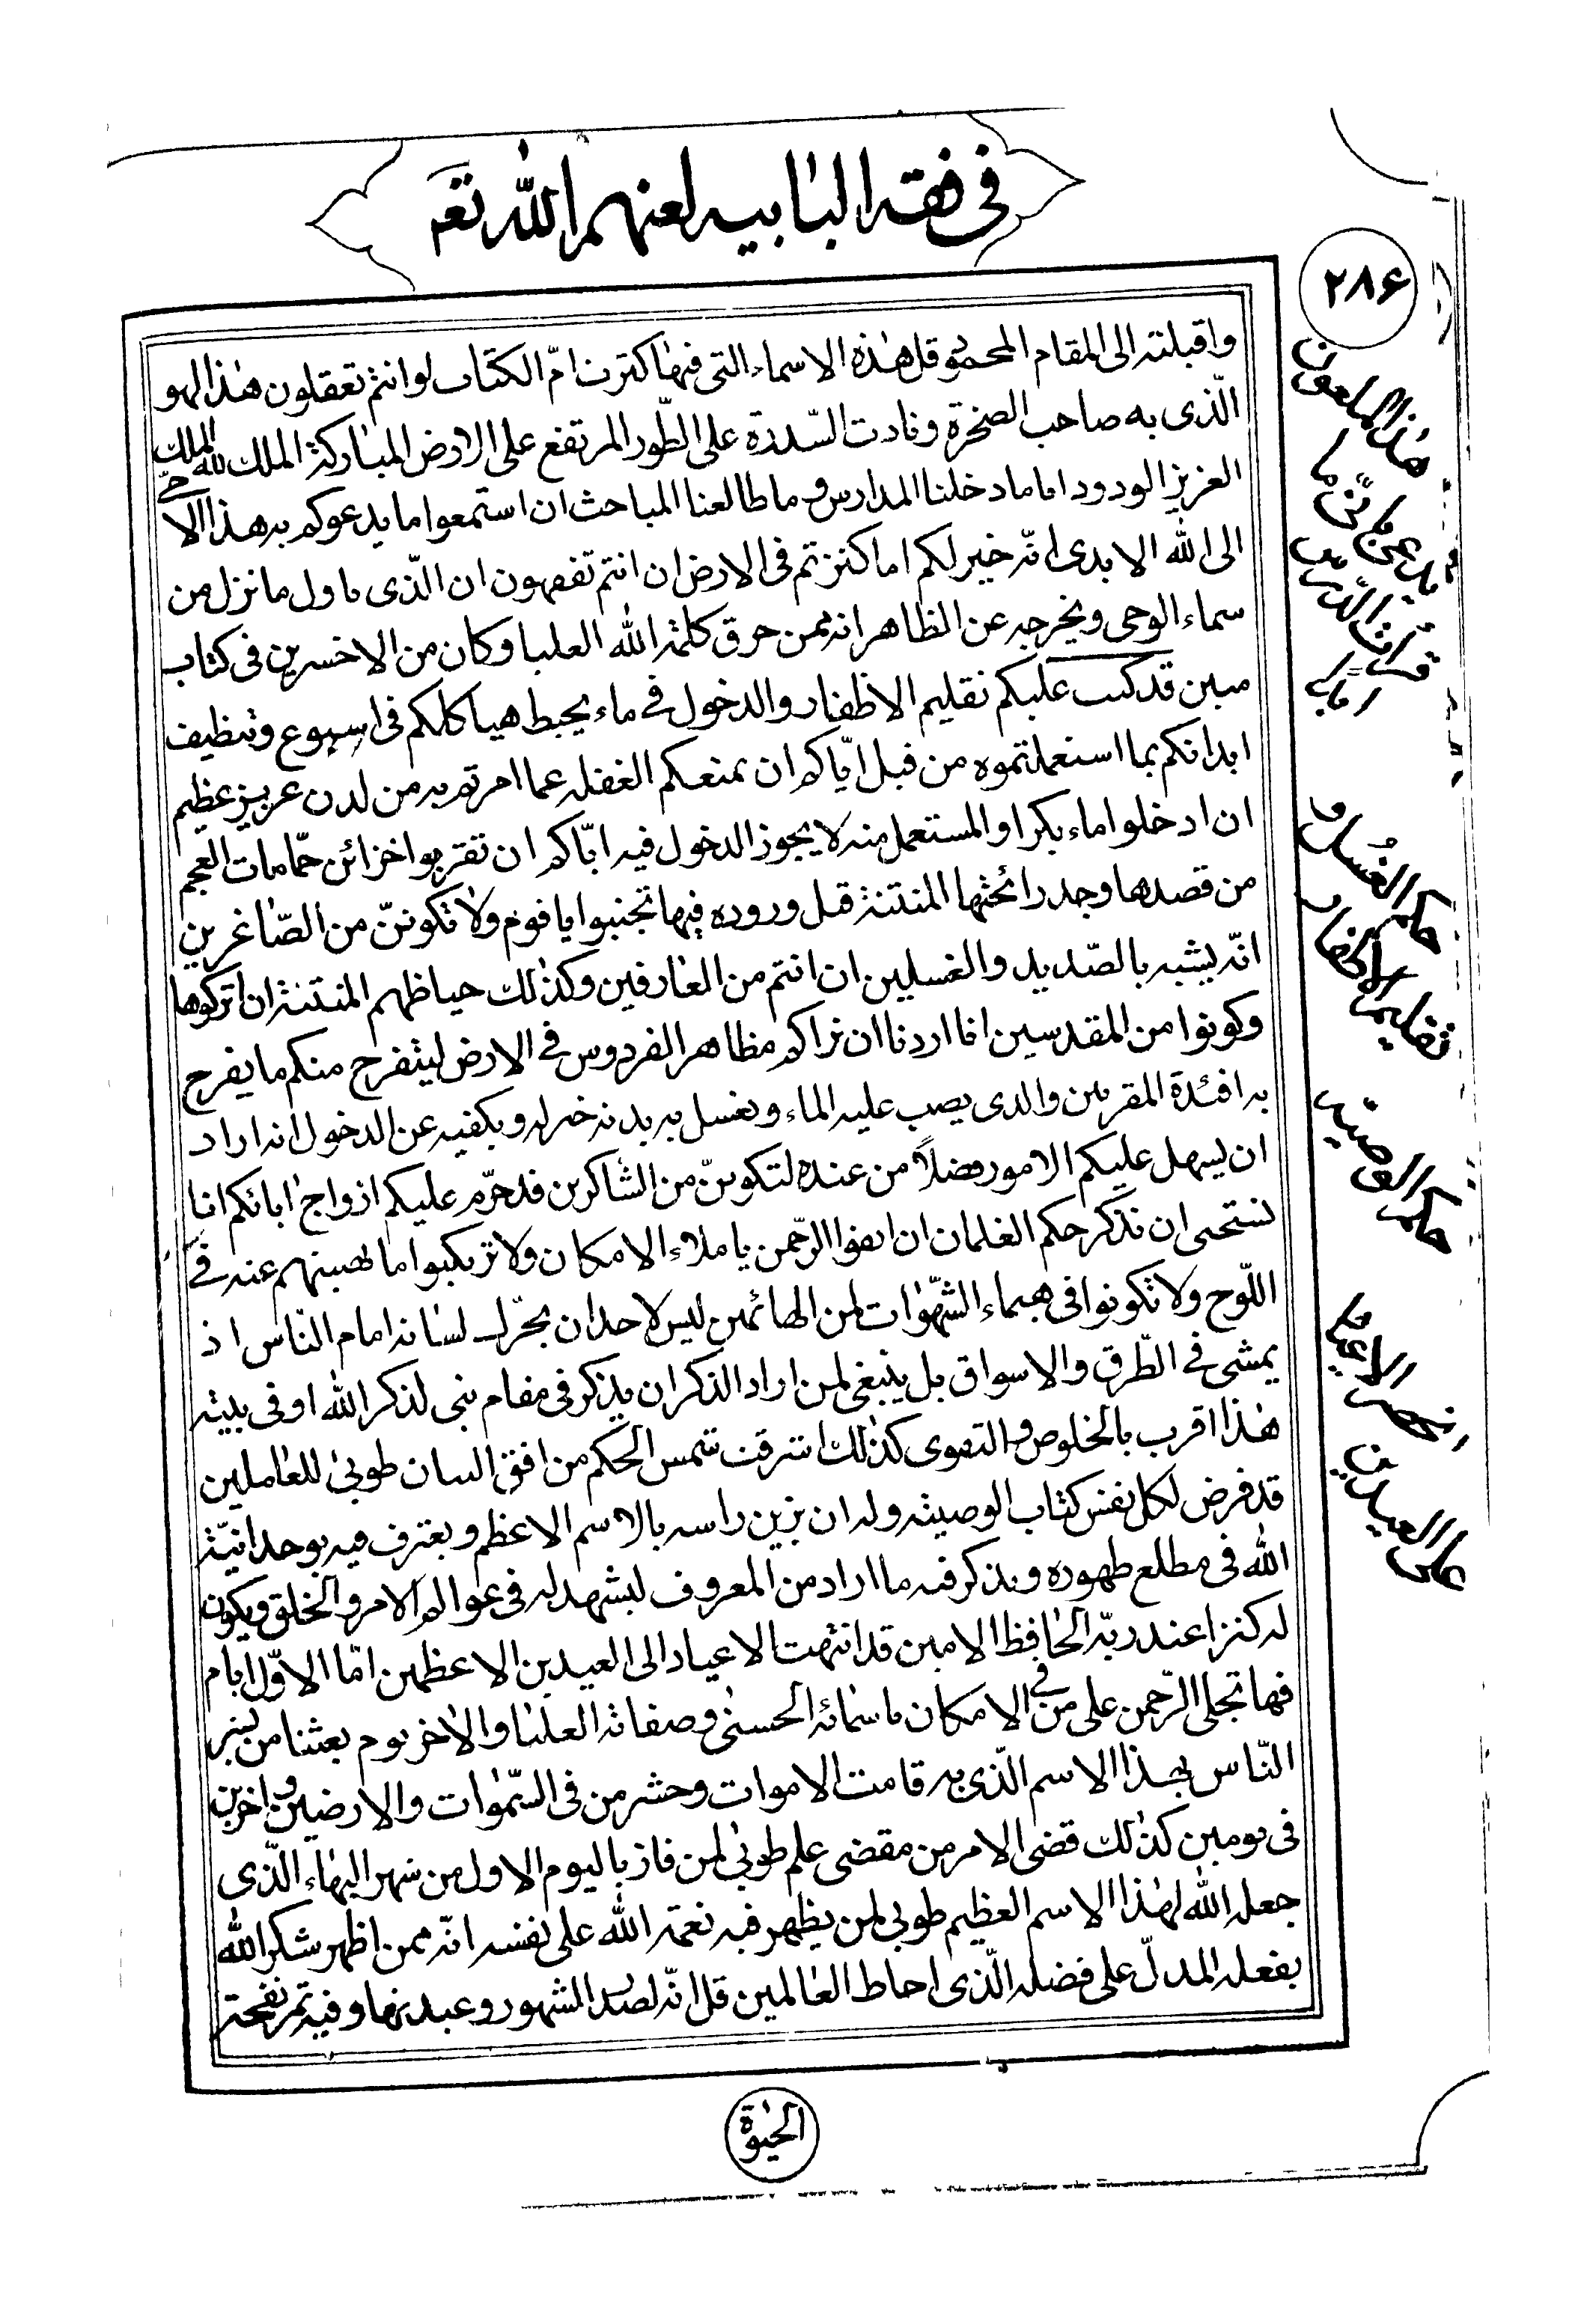 في فقه البابيه لعنهم الله تع
۲۸۶
واقبلته الى المقام المحمود قل هذه الاسماء التى فيها كترت امّ الكتاب لو انتم تعقلون هذا لهو
الّذى به صاحب الصخرة ونادت السّدرة على الطّور المرتفع على الارض المباركة الملك لله الملك
العزيز الودود اناما دخلنا المدارس وما طالعنا المباحث ان استمعوا ما يدعوكم به هذا الا
الى الله الابدى انّه خير لكم اما كنزتم فى الارض ان انتم تفقهون ان الّذى ياول ما نزل من
سماء الوحى ويخرجه عن الظاهر انه ممن حرق كلمة الله العليا وكان من الاخسرين فى كتاب
مبين قد كتب عليكم تقليم الاظفار والدخول في ماء يحيط هياكلكم فى اسبوع وتنظيف
ابدانكم بما استعملتموه من قبل ايّاكم ان يمنعكم الغفله عما امرتم به من لدن عزيز عظيم
ان ادخلوا ماء بكرا والمستعمل منه لا يجوز الدخول فيه ايّاكم ان تقربوا خزائن حمّامات العجم
من قصدها وجد رائحتها المنتنة قبل وروده فيها تجنبوا يا قوم ولا تكوننّ من الصّاغرين
انّه يشبه بالصّديد والغسلين ان انتم من العارفين وكذلك حياظهم المنتنة ان اتركوها
وكونوا من المقدسين انا اردنا ان نراكم مظاهر الفردوس في الارض ليتفرح منكم ما يفرح
به افئدة المقربين والذى يصب عليه الماء ويغسل به بدنه خير له ويكفيه عن الدخول انه اراد
ان يسهل عليكم الامور فضلاً من عنده لتكوننّ من الشاكرين قد حرّم عليكم ازواج ابائكم انا
نستحيى ان نذكر حكم الغلمان ان اتقوا الرّحمن يا ملاء الامكان ولا ترتكبوا ما نهيتهم عنه في
اللّوح ولا تكونوا فى هيماء الشّهوات لمن الهائمين ليس لاحد ان يحرّك لسانه امام النّاس اذ
يمشى في الطّرق والاسواق بل ينبغى لمن اراد الذكر ان يذكر فى مقام بنى لذكر الله او فى بيته
هذا اقرب بالخلوص والتقوى كذلك اشرقت شمس الحكم من افق البيان طوبى للعاملين
قد فرض لكل نفس كتاب الوصيته وله ان يزين راسه بالاسم الاعظم ويعترف فيه بوحدانيّة
الله فى مطلع ظهوره ويذكر فيه ما اراد من المعروف ليشهد له فى عوالم الامر والخلق ويكون
له كنزا عند ربّه الحافظ الامين قد انتهت الاعياد الى العيدين الاعظمين امّا الاوّل ايام
فيها تجلى الرّحمن على من في الامكان باسمائه الحسنى وصفاته العليا والاخر يوم بعثنا من يبشر
النّاس بهذا الاسم الّذى به قامت الاموات وحشر من فى السّموات والارضين واخرين
فى يومين كذلك قضى الامر من مقضى علم طوبى لمن فاز باليوم الاول من شهر البهاء الّذى
جعله الله لهذا الاسم العظيم طوبى لمن يظهر فيه نعمة الله على نفسه انّه ممن اظهر شكر الله
بفعله المدلّ على فضله الّذى احاط العالمين قل انّه لصدر الشهور وعبدنها وفيه تمر نفحة
هذا الملعون
يدعى بانّى ما
قرات الدّرس
حكم الغسل و
تقليم الاظفار
حكم الوصيّه
انحصر الاعياد
على العيدين
الحيوة